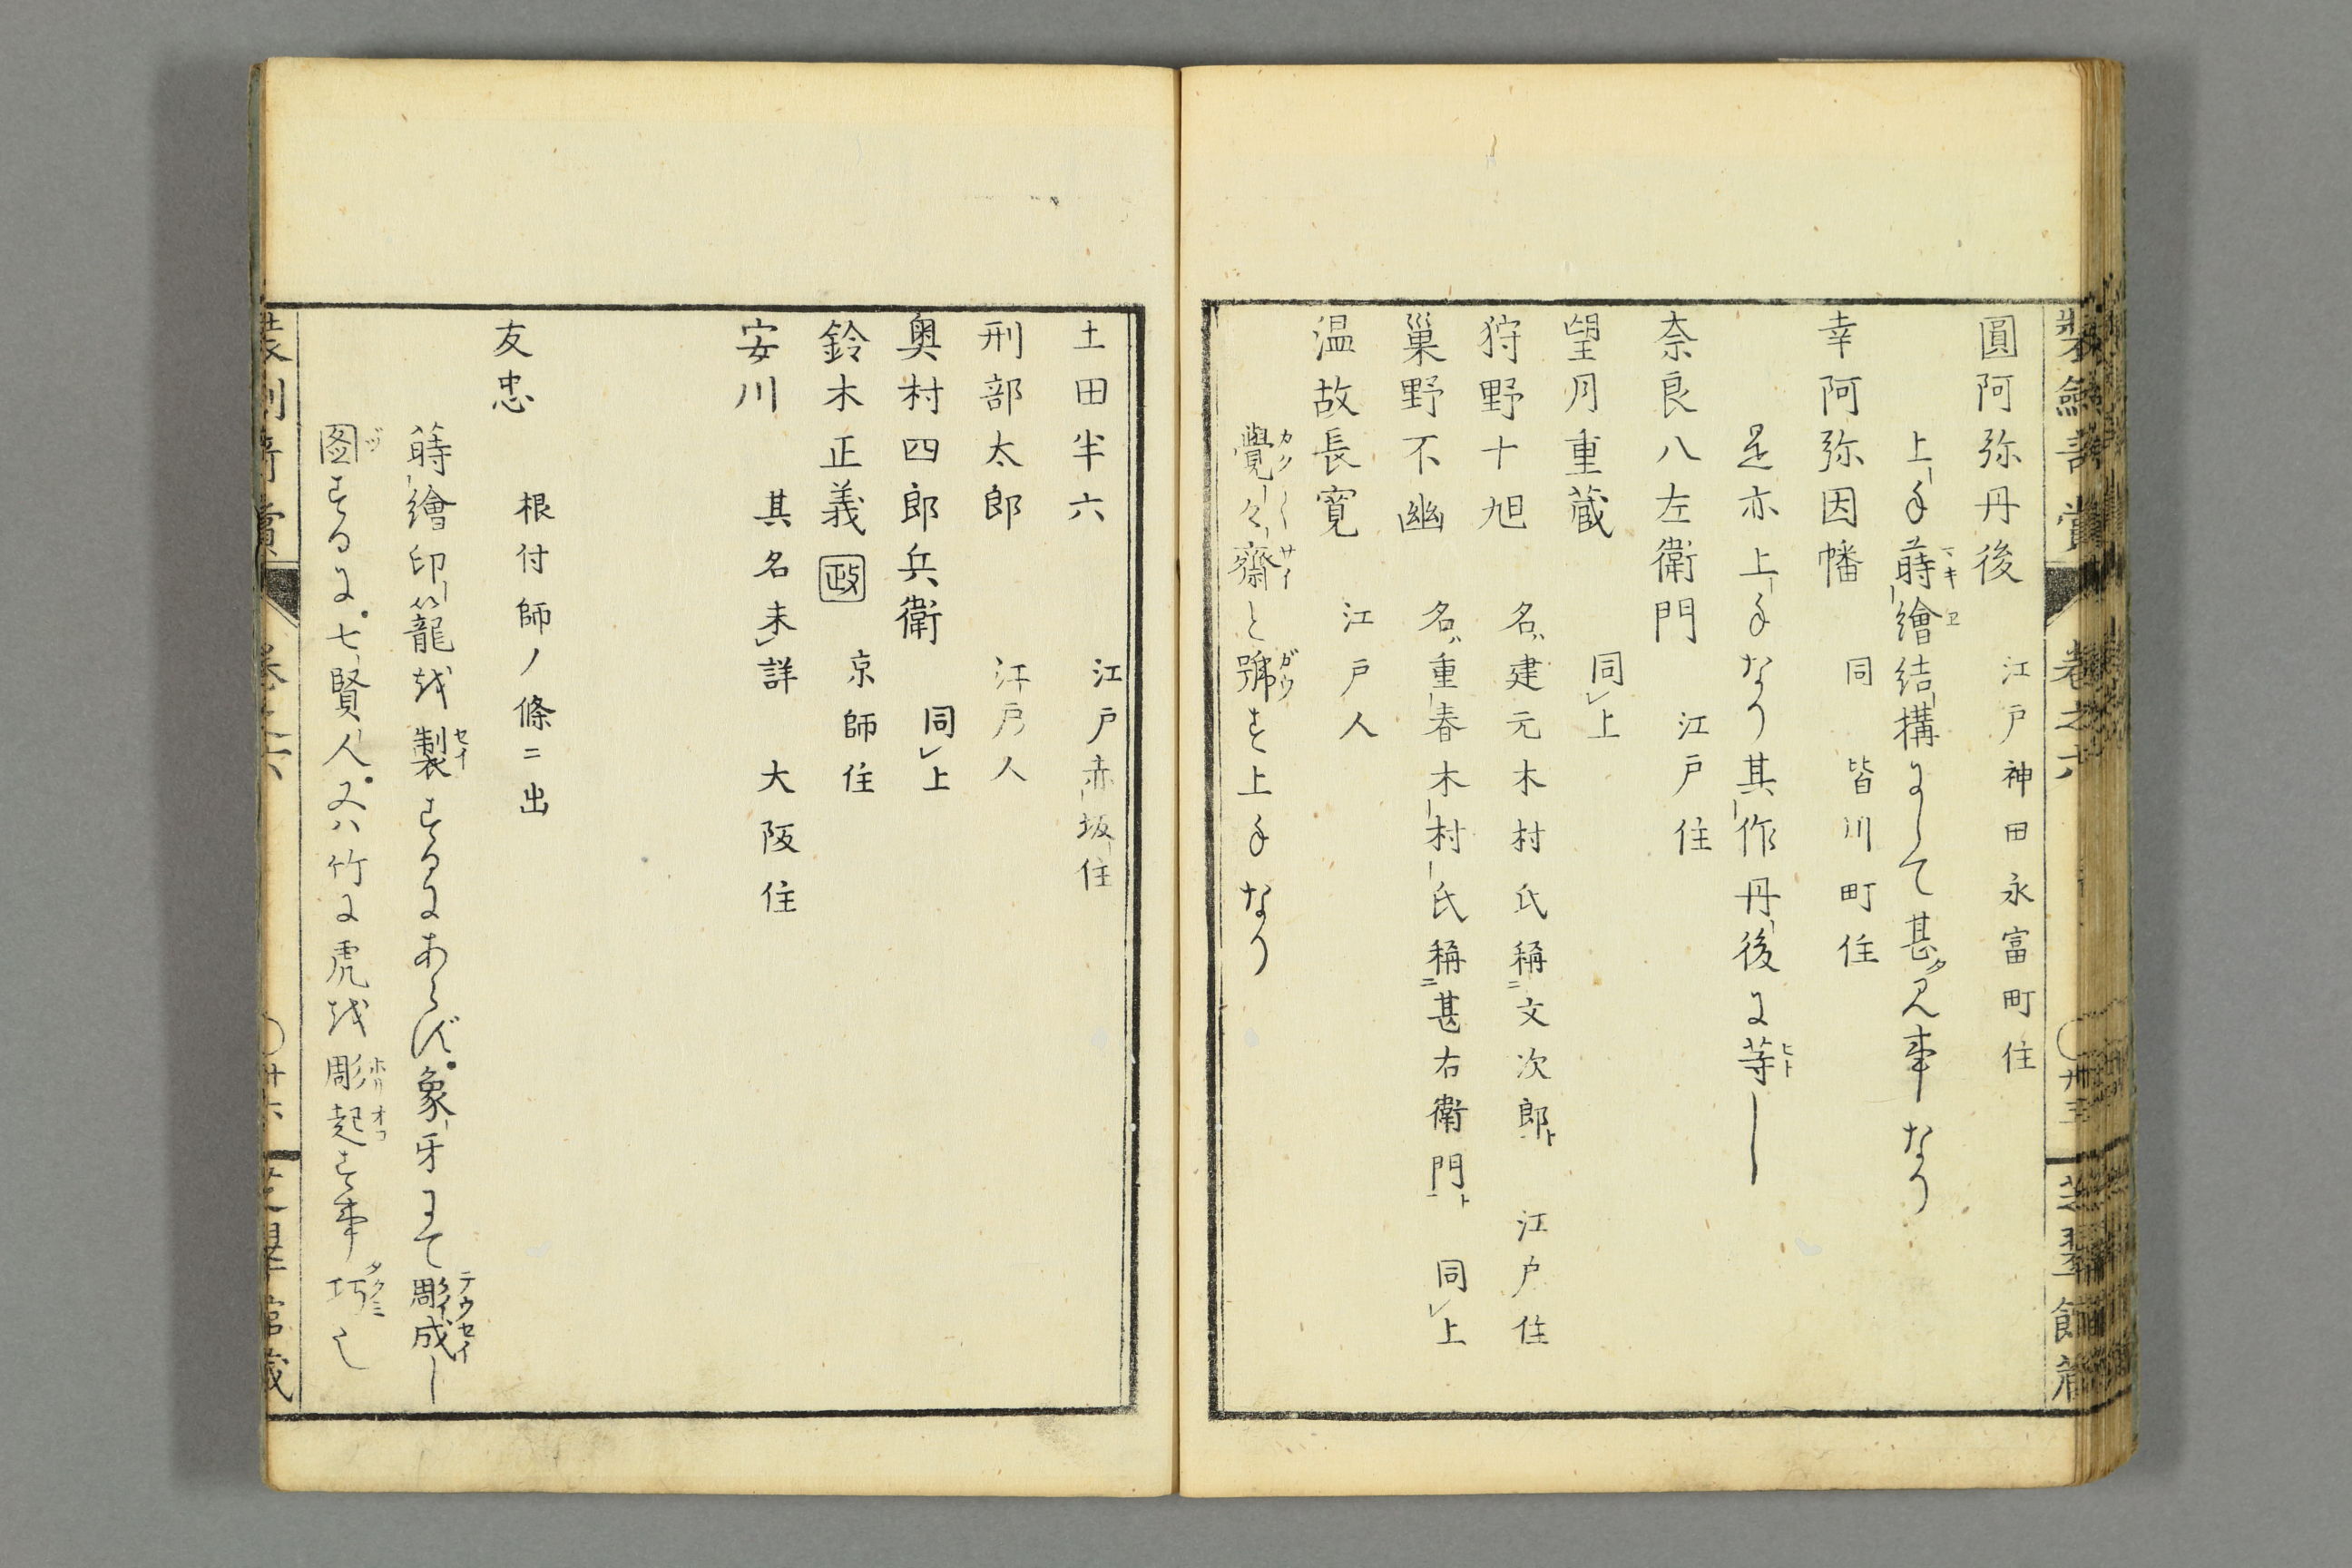 圓阿弥丹後　江戸神田永富町住
上手蒔繪結構にして甚タ見事なり
幸阿弥因幡　同皆川町住
是亦上手なり其作丹後に等し
奈良八左衛門　江戸住
望月重蔵　同上
狩野十旭　名ハ建元木村氏稱ニ文次郎ト　江戸住
巢野不幽　名ハ重春木村氏稱ニ甚右衛門ト　同上
温故長寛　江戸人
覺々齋と號す上手なり
土田半六　江戸赤坂住
刑部太郎　江戸人
奥村四郎兵衛　同上
鈴木正義　政　京師住
安川　其名未詳　大阪住
友忠　根付師ノ條ニ出
蒔繪印籠を製するにあらず象牙にて彫成し
図するに七賢人又ハ竹に虎を彫起す事巧也